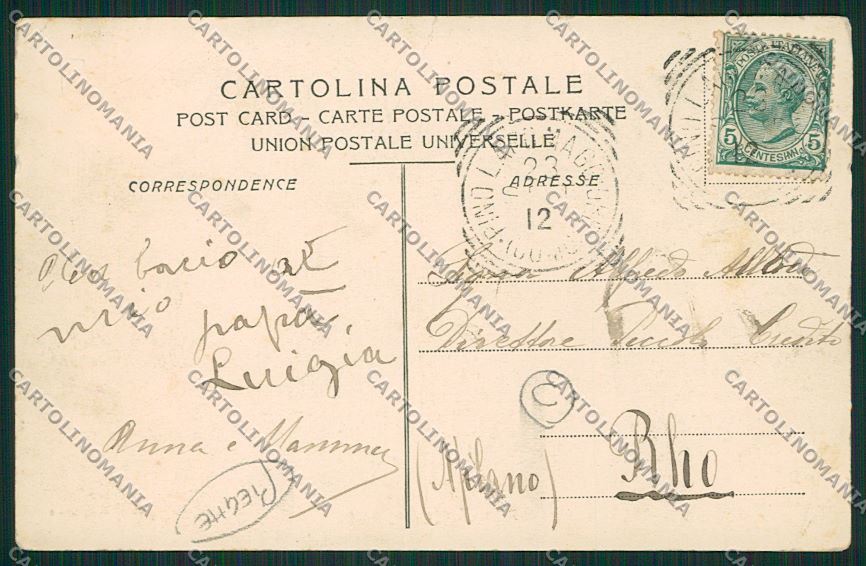 CARTOLINA POSTALE
POST CARD - CARTE POSTALE - POSTKARTE
UNION POSTALE UNIVERSELLE
CORRESPONDENCE
ADRESSE
POSTE ITALIANE
5 CENTESIMI 5
PINO L. MAGGIORE
23
12
(COMO)
bacio al
mio papà,
Luigia
Anna e Mamma
PIEGHE
Alfredo
Direttore Piccolo Credito
C
Rho
(Milano)
CARTOLINOMANIA